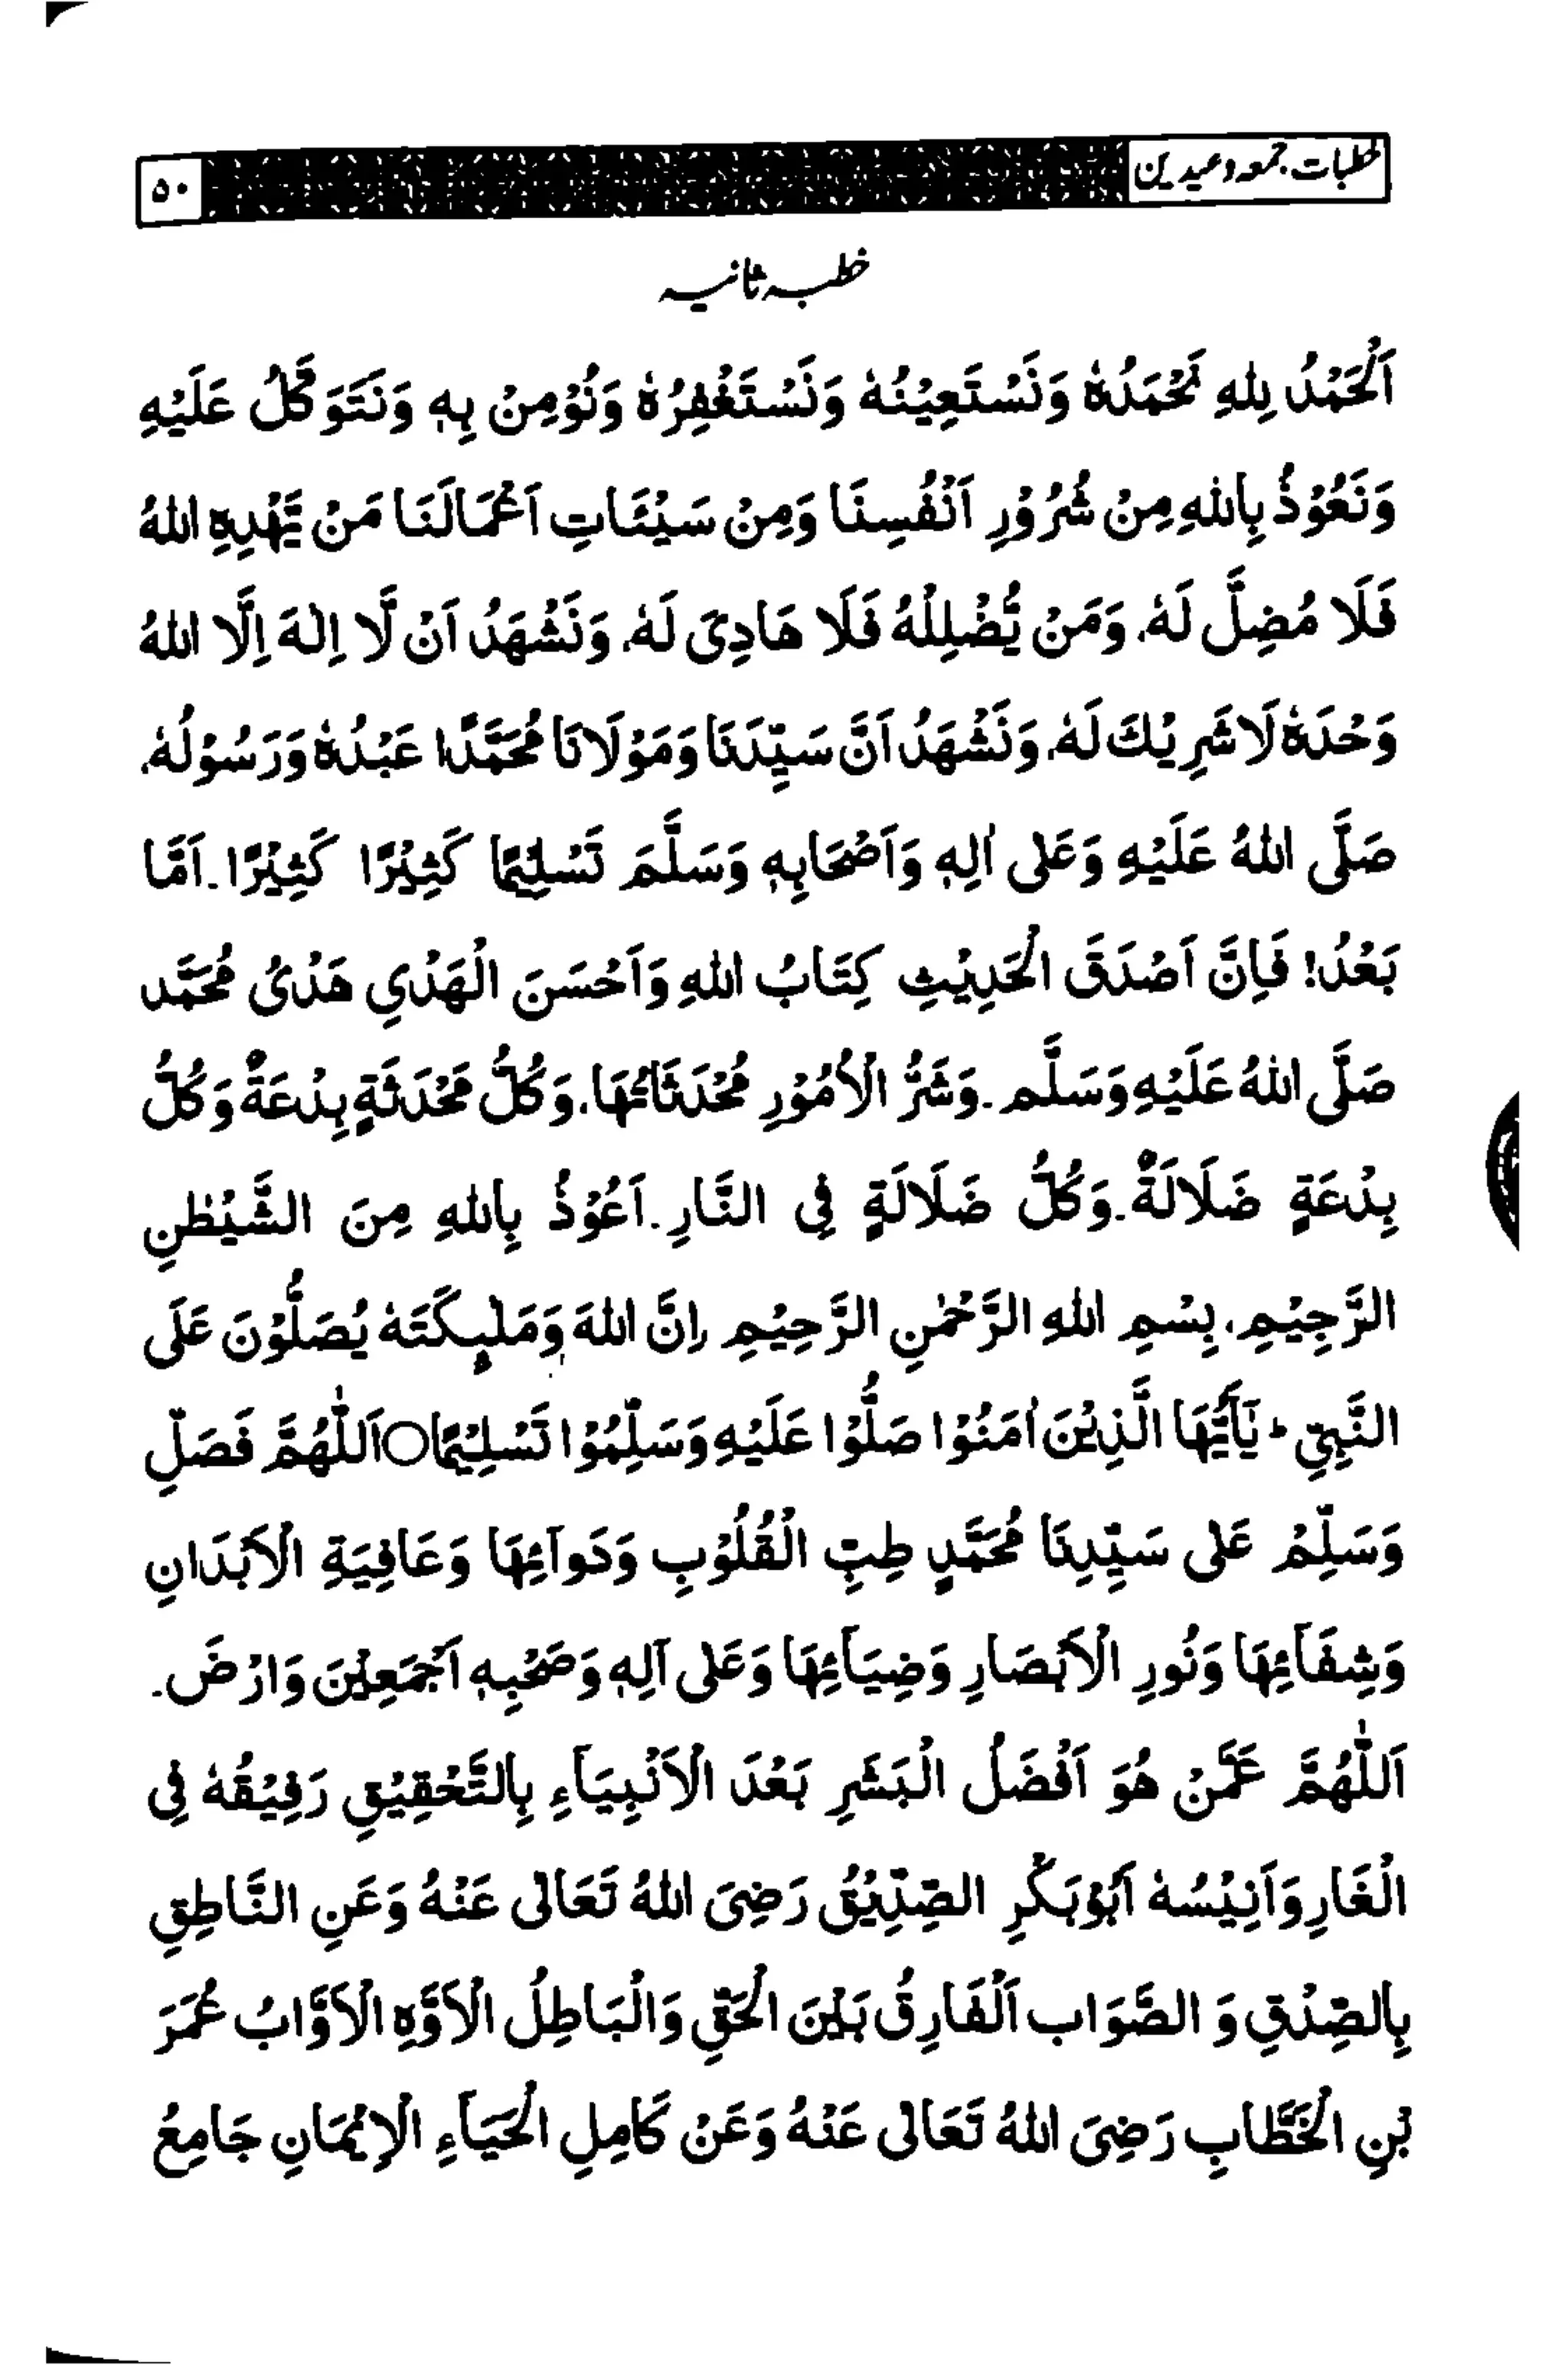 خطبات جمعہ و عیدین
۵۰
خطبہ ثانیہ
اَلْحَمْدُ لِلهِ نَحْمَدُهٗ وَنَسْتَعِيْنُهٗ وَنَسْتَغْفِرُهٗ وَنُوْمِنُ بِهٖ وَنَتَوَكَّلُ عَلَيْهِ
وَنَعُوْذُ بِاللهِ مِنْ شُرُوْرِ اَنْفُسِنَا وَمِنْ سَيْئَاتِ اَعْمَالَنَا مَنْ يَّهْدِهِ اللهُ
فَلَا مُضِلَّ لَهٗ، وَمَنْ يُّضْلِلْهُ فَلَا هَادِىَ لَهٗ، وَنَشْهَدُ اَنْ لَّا اِلٰهَ اِلَّا اللهُ
وَحْدَهٗ لَا شَرِيْكَ لَهٗ، وَنَشْهَدُ اَنَّ سَيِّدَنَا وَمَوْلَانَا مُحَمَّدًا عَبْدُهٗ وَرَسُوْلُهٗ،
صَلَّى اللهُ عَلَيْهِ وَعَلٰى اٰلِهٖ وَاَصْحَابِهٖ وَسَلَّمَ تَسْلِيْمًا كَثِيْرًا كَثِيْرًا۔ اَمَّا
بَعْدُ! فَاِنَّ اَصْدَقَ الْحَدِيْثِ كِتَابُ اللهِ وَاَحْسَنَ الْهَدْيِ هَدْىُ مُحَمَّد
صَلَّى اللهُ عَلَيْهِ وَسَلَّم۔ وَشَرُّ الْاُمُوْرِ مُحْدَثَاتُهَا، وَكُلُّ مَحْدَثَةٍ بِدْعَةٌ وَكُلُّ
بِدْعَةٍ ضَلَالَةٌ۔ وَكُلُّ ضَلَالَةٍ فِى النَّارِ۔ اَعُوْذُ بِاللهِ مِنَ الشَّيْطٰنِ
الرَّجِيْمِ، بِسْمِ اللهِ الرَّحْمٰنِ الرَّحِيْمِ اِنَّ اللهَ وَمَلٰٓئِكَتَهٗ يُصَلُّوْنَ عَلَى
النَّبِىِّ ط يَآَيُّهَا الَّذِيْنَ اٰمَنُوْا صَلُّوْا عَلَيْهِ وَسَلِّمُوْا تَسْلِيْمًا○ اَللّٰهُمَّ فَصَلِّ
وَسَلِّمْ عَلٰى سَيِّدِنَا مُحَمَّدٍ طِبِّ الْقُلُوْبِ وَدَوآئِهَا وَعَافِيَةِ الْاَبْدَانِ
وَشِفَآئِهَا وَنُورِ الْاَبْصَارِ وَضِيَآئِهَا وَعَلٰى آلِهٖ وَصَحْبِهٖ اَجْمَعِيْنَ وَارْضَ۔
اَللّٰهُمَّ عَمَّنْ هُوَ اَفْضَلُ الْبَشَرِ بَعْدَ الْاَنْبِيَآءِ بِالتَّحْقِيْقِ رَفِيْقُهٗ فِى
الْغَارِ وَاَنِيْسُهٗ اَبُوْبَكْرِ الصِّدِّيْقُ رَضِىَ اللهُ تَعَالٰى عَنْهُ وَعَنِ النَّاطِقِ
بِالصِّدْقِ وَ الصَّوَاب اَلْفَارِقُ بَيْنَ الْحَقِّ وَالْبَاطِلُ الْاَوَّهِ الْاَوَّابُ عُمَرَ
بْنِ الْخَطَّابِ رَضِىَ اللهُ تَعَالٰى عَنْهُ وَعَنْ كَامِلِ الْحَيَآءِ الْاِيْمَانِ جَامِعُ